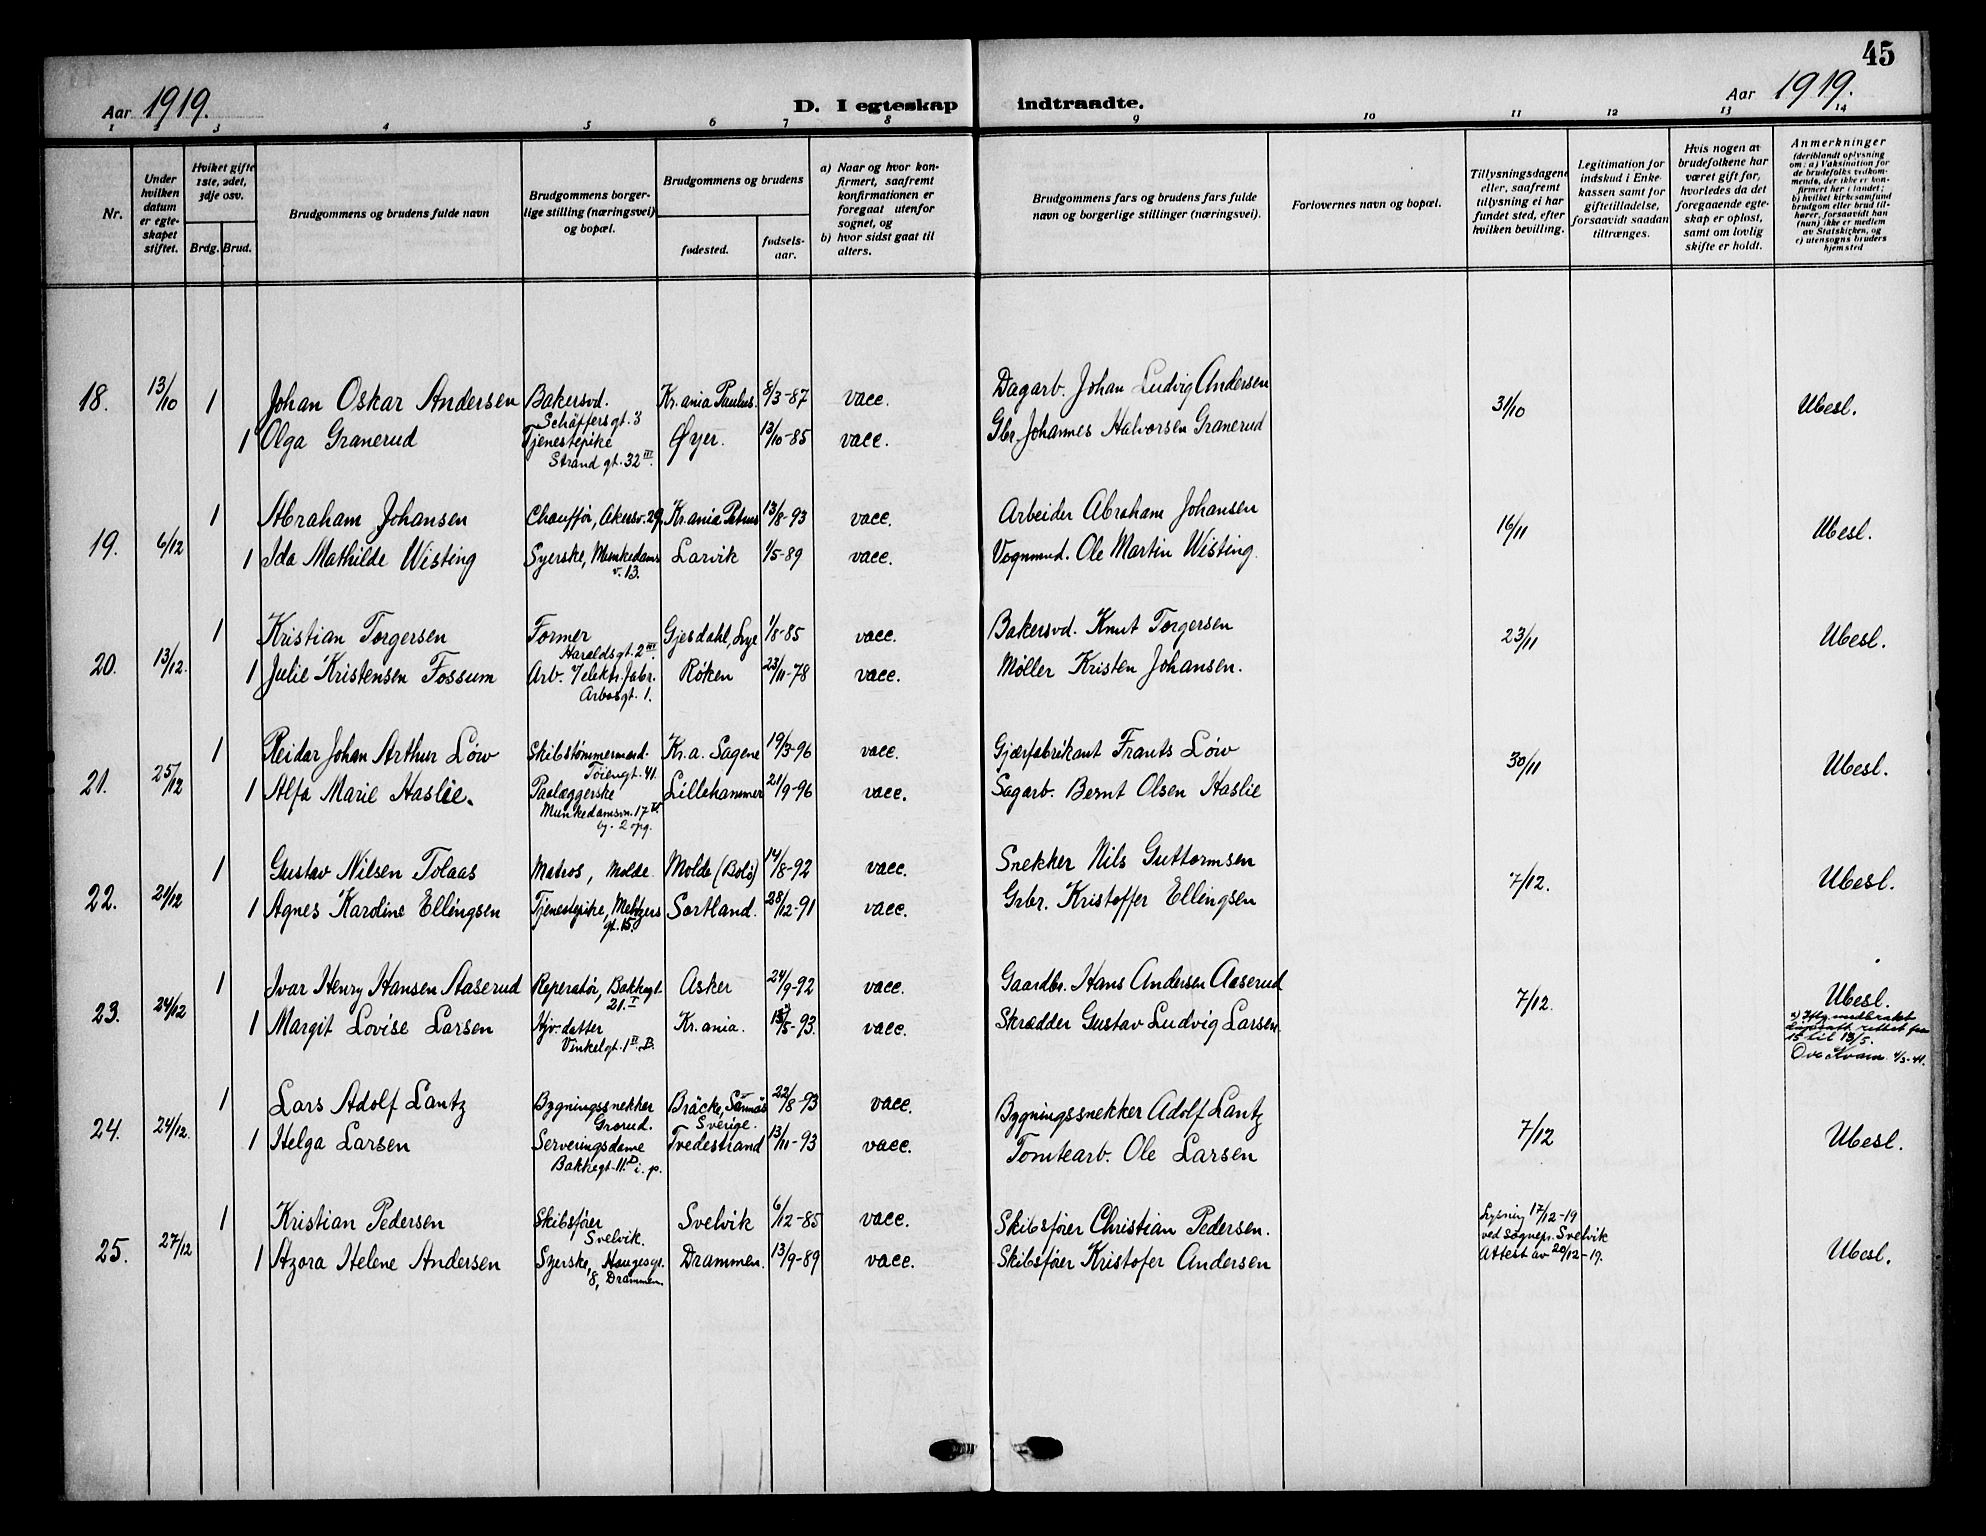 45
Aar 1919.
D. I egteskap indtraadte.
Aar 1919.
1 2 3 4 5 6 7 8 9 10 11 12 13 14
Nr.
Under hvilken datum er egteskapet stiftet.
Hvilket gifte 1ste, 2det, 3dje osv.
Brdg. Brud.
Brudgommens og brudens fulde navn
Brudgommens borgerlige stilling (næringsvei) og bopæl.
Brudgommens og brudens
fødested.
fødselsaar.
a) Naar og hvor konfirmert, saafremt konfirmationen er foregaat utenfor sognet, og
b) hvor sidst gaat til alters.
Brudgommens fars og brudens fars fulde navn og borgerlige stillinger (næringsvei).
Forlovernes navn og bopæl.
Tillysningsdagene eller, saafremt tillysning ei har fundet sted, efter hvilken bevilling.
Legitimation for indskud i Enkekassen samt for giftetilladelse, forsaavidt saadan tiltrænges.
Hvis nogen av brudefolkene har været gift før, hvorledes da det foregaaende egteskap er opløst, samt om lovlig skifte er holdt.
Anmerkninger (deriblandt oplysning om: a) Vaksination for de brudefolks vedkommende, der ikke er konfirmert her i landet; b) hvilket kirkesamfund brudgom eller brud tilhører, forsaavidt han (hun) ikke er medlem av Statskirken, og c) utensogns bruders hjemsted
18. 13/10 1 Johan Oskar Andersen Bakersvd. Schäffersgt. 3 Kr.ania Paulus. 8/3-87 vacc. Dagarb. Johan Ludvig Andersen 31/10 Ubesl.
1 Olga Granerud Tjenestepike Strandgt. 32 III. Øyer. 13/10-85 vacc. Gbr. Johannes Halvorsen Granerud
19. 6/12 1 Abraham Johansen Chauffør, Akersv. 29. Kr.ania Petrus 13/8-93 vacc. Arbeider Abraham Johansen 16/11 Ubesl.
1 Ida Mathilde Wisting Syerske, Munkedams v. 13. Larvik 1/5-89 vacc. Vognmnd. Ole Martin Wisting.
20. 13/12. 1 Kristian Torgersen Former Haraldsgt. 2 III. Gjesdahl, Lye 1/8-85 vacc. Bakersvd. Knut Torgersen 23/11 Ubesl.
1 Julie Kristensen Fossum Arb. v/elektr. fabr. Arbosgt. 1. Röken 23/11-78 vacc. Møller Kristen Johansen.
21. 25/12 1 Reidar Johan Arthur Löw Skibstömmermand. Töiengt. 41. Kr.a. Sagene 19/3-96 vacc. Gjærfabrikant Frants Löw 30/11 Ubesl.
1 Alfa Marie Haslie. Paalæggerske Munkedamsvn. 17 by. 2 opg. Lillehammer 21/9-96 vacc. Sagarb. Bernt Olsen Haslie
22. 21/12 1 Gustav Nilsen Tolaas Matros, Molde Molde (Bolsö) 14/8-92 vacc. Snekker Nils Guttormsen 7/12. Ubesl.
1 Agnes Karoline Ellingsen Tjenestepike, Meltzers gt. 15. Sortland. 28/12-91 vacc. Grbr. Kristoffer Ellingsen
23. 24/12 1 Ivar Henry Hansen Aaserud Reperatør, Bakkegt. 21. I Asker 24/9-92 vacc. Gaardbr. Hans Andersen Aaserud 7/12. Ubesl.
1 Margit Lovise Larsen Hjv. datter Vinkelgt. 1 II. B. Kr.ania. /5-93. vacc. Skrædder Gustav Ludvig Larsen
rettet fra 15 til 13/5. Ove Kvam 4/3-41.
24. 24/12. 1 Lars Adolf Lantz Bygningssnekker Grorud. Bräcke, Sverige. 22/8-93 vacc. Bygningssnekker Adolf Lantz 7/12 Ubesl.
1 Helga Larsen Serveringsdame Bakkegt. 11 D i. p. Tvedestrand 13/11-93 vacc. Tomtearb. Ole Larsen
25. 27/12 1 Kristian Pedersen Skibsfører Svelvik. Svelvik 6/12-85 vacc. Skibsfører Christian Pedersen. Lysning 17/12-19 ved sognepr. Svelvik Attest av 20/12-19. Ubesl.
1 Azora Helene Andersen Syerske, Haugesgt. 8, Drammen. Drammen. 13/9-89 vacc. Skibsfører Kristofer Andersen